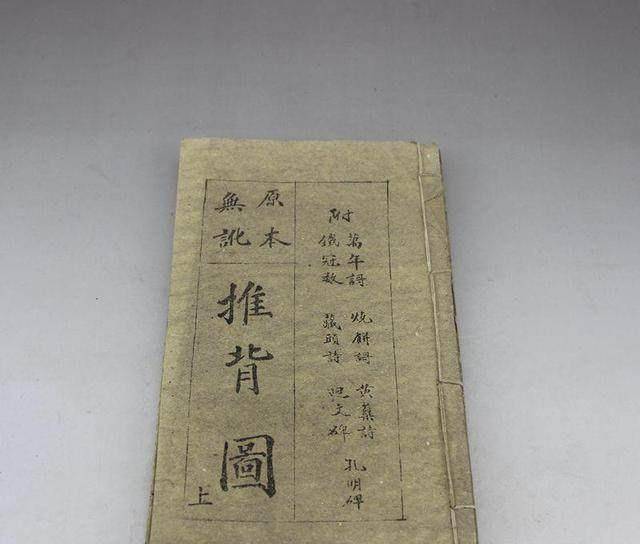 附
萬年謌 燒餅謌 黃蘗詩 孔明碑
鐵冠數 藏頭詩 文碑
原本
無訛
推背圖
上